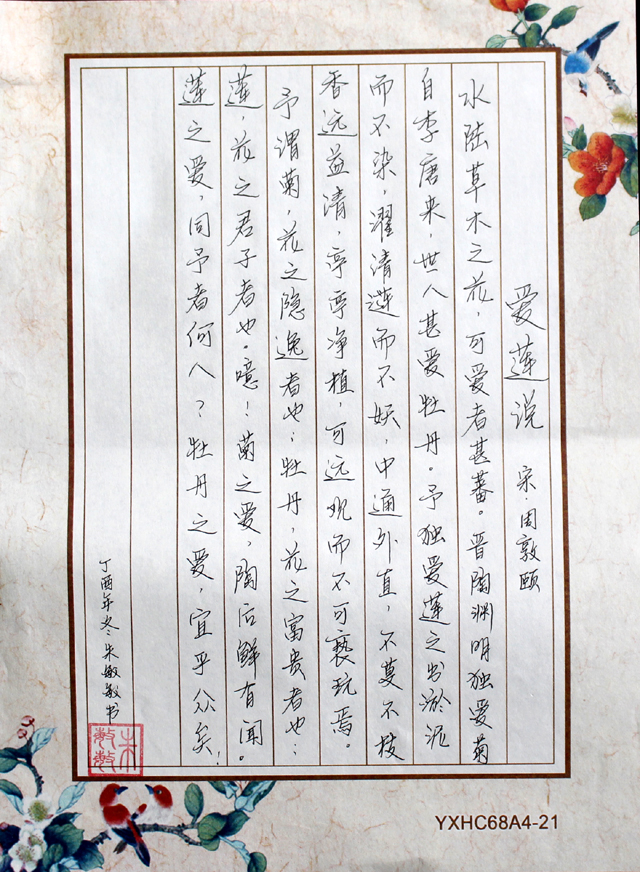 爱莲说 宋·周敦颐
水陆草木之花，可爱者甚蕃。晋陶渊明独爱菊
自李唐来，世人甚爱牡丹。予独爱莲之出淤泥
而不染，濯清涟而不妖，中通外直，不蔓不枝
香远益清，亭亭净植，可远观而不可亵玩焉。
予谓菊，花之隐逸者也；牡丹，花之富贵者也；
莲，花之君子者也。噫！菊之爱，陶后鲜有闻。
莲之爱，同予者何人？牡丹之爱，宜乎众矣！
丁酉年冬朱敏敏书
朱敏敏
YXHC68A4-21